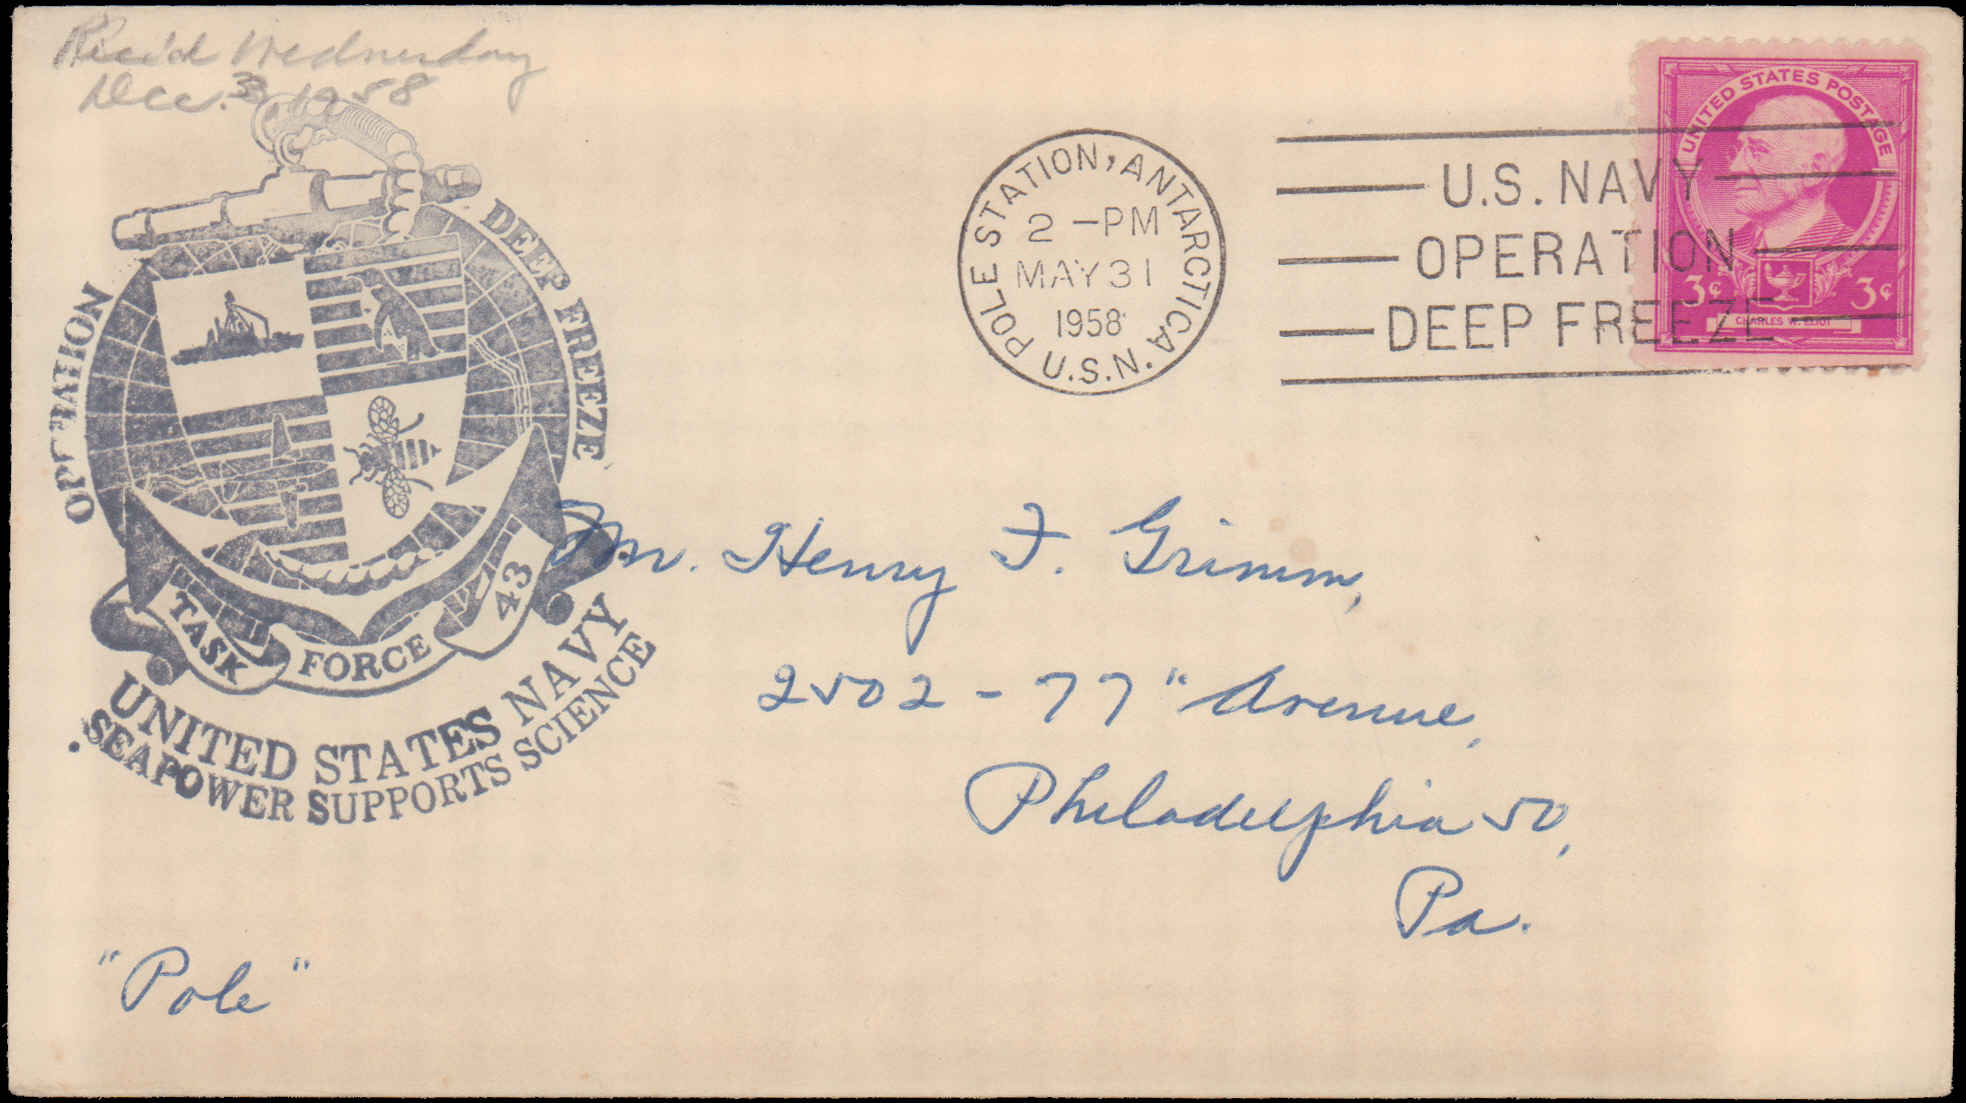 Rec'd Wednesday
Dec. 3, 1958
OPERATION DEEP FREEZE
TASK FORCE 43
UNITED STATES NAVY
SEAPOWER SUPPORTS SCIENCE
POLE STATION, ANTARCTICA
2 -PM
MAY 31
1958
U.S.N.
U.S. NAVY
OPERATION
DEEP FREEZE
UNITED STATES POSTAGE
3¢ 3¢
CHARLES W. ELIOT
Mr. Henry F. Grimm,
2502 - 77" Avenue,
Philadelphia 50,
Pa.
"Pole"